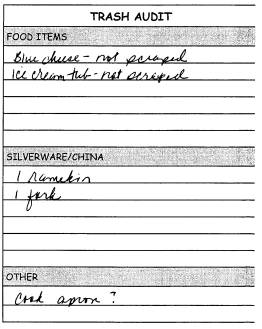 TRASH AUDIT
FOOD ITEMS
Blue cheese - not scraped
Ice cream tub - not scraped
SILVERWARE/CHINA
1 ramekin
1 fork
OTHER
Cook apron ?